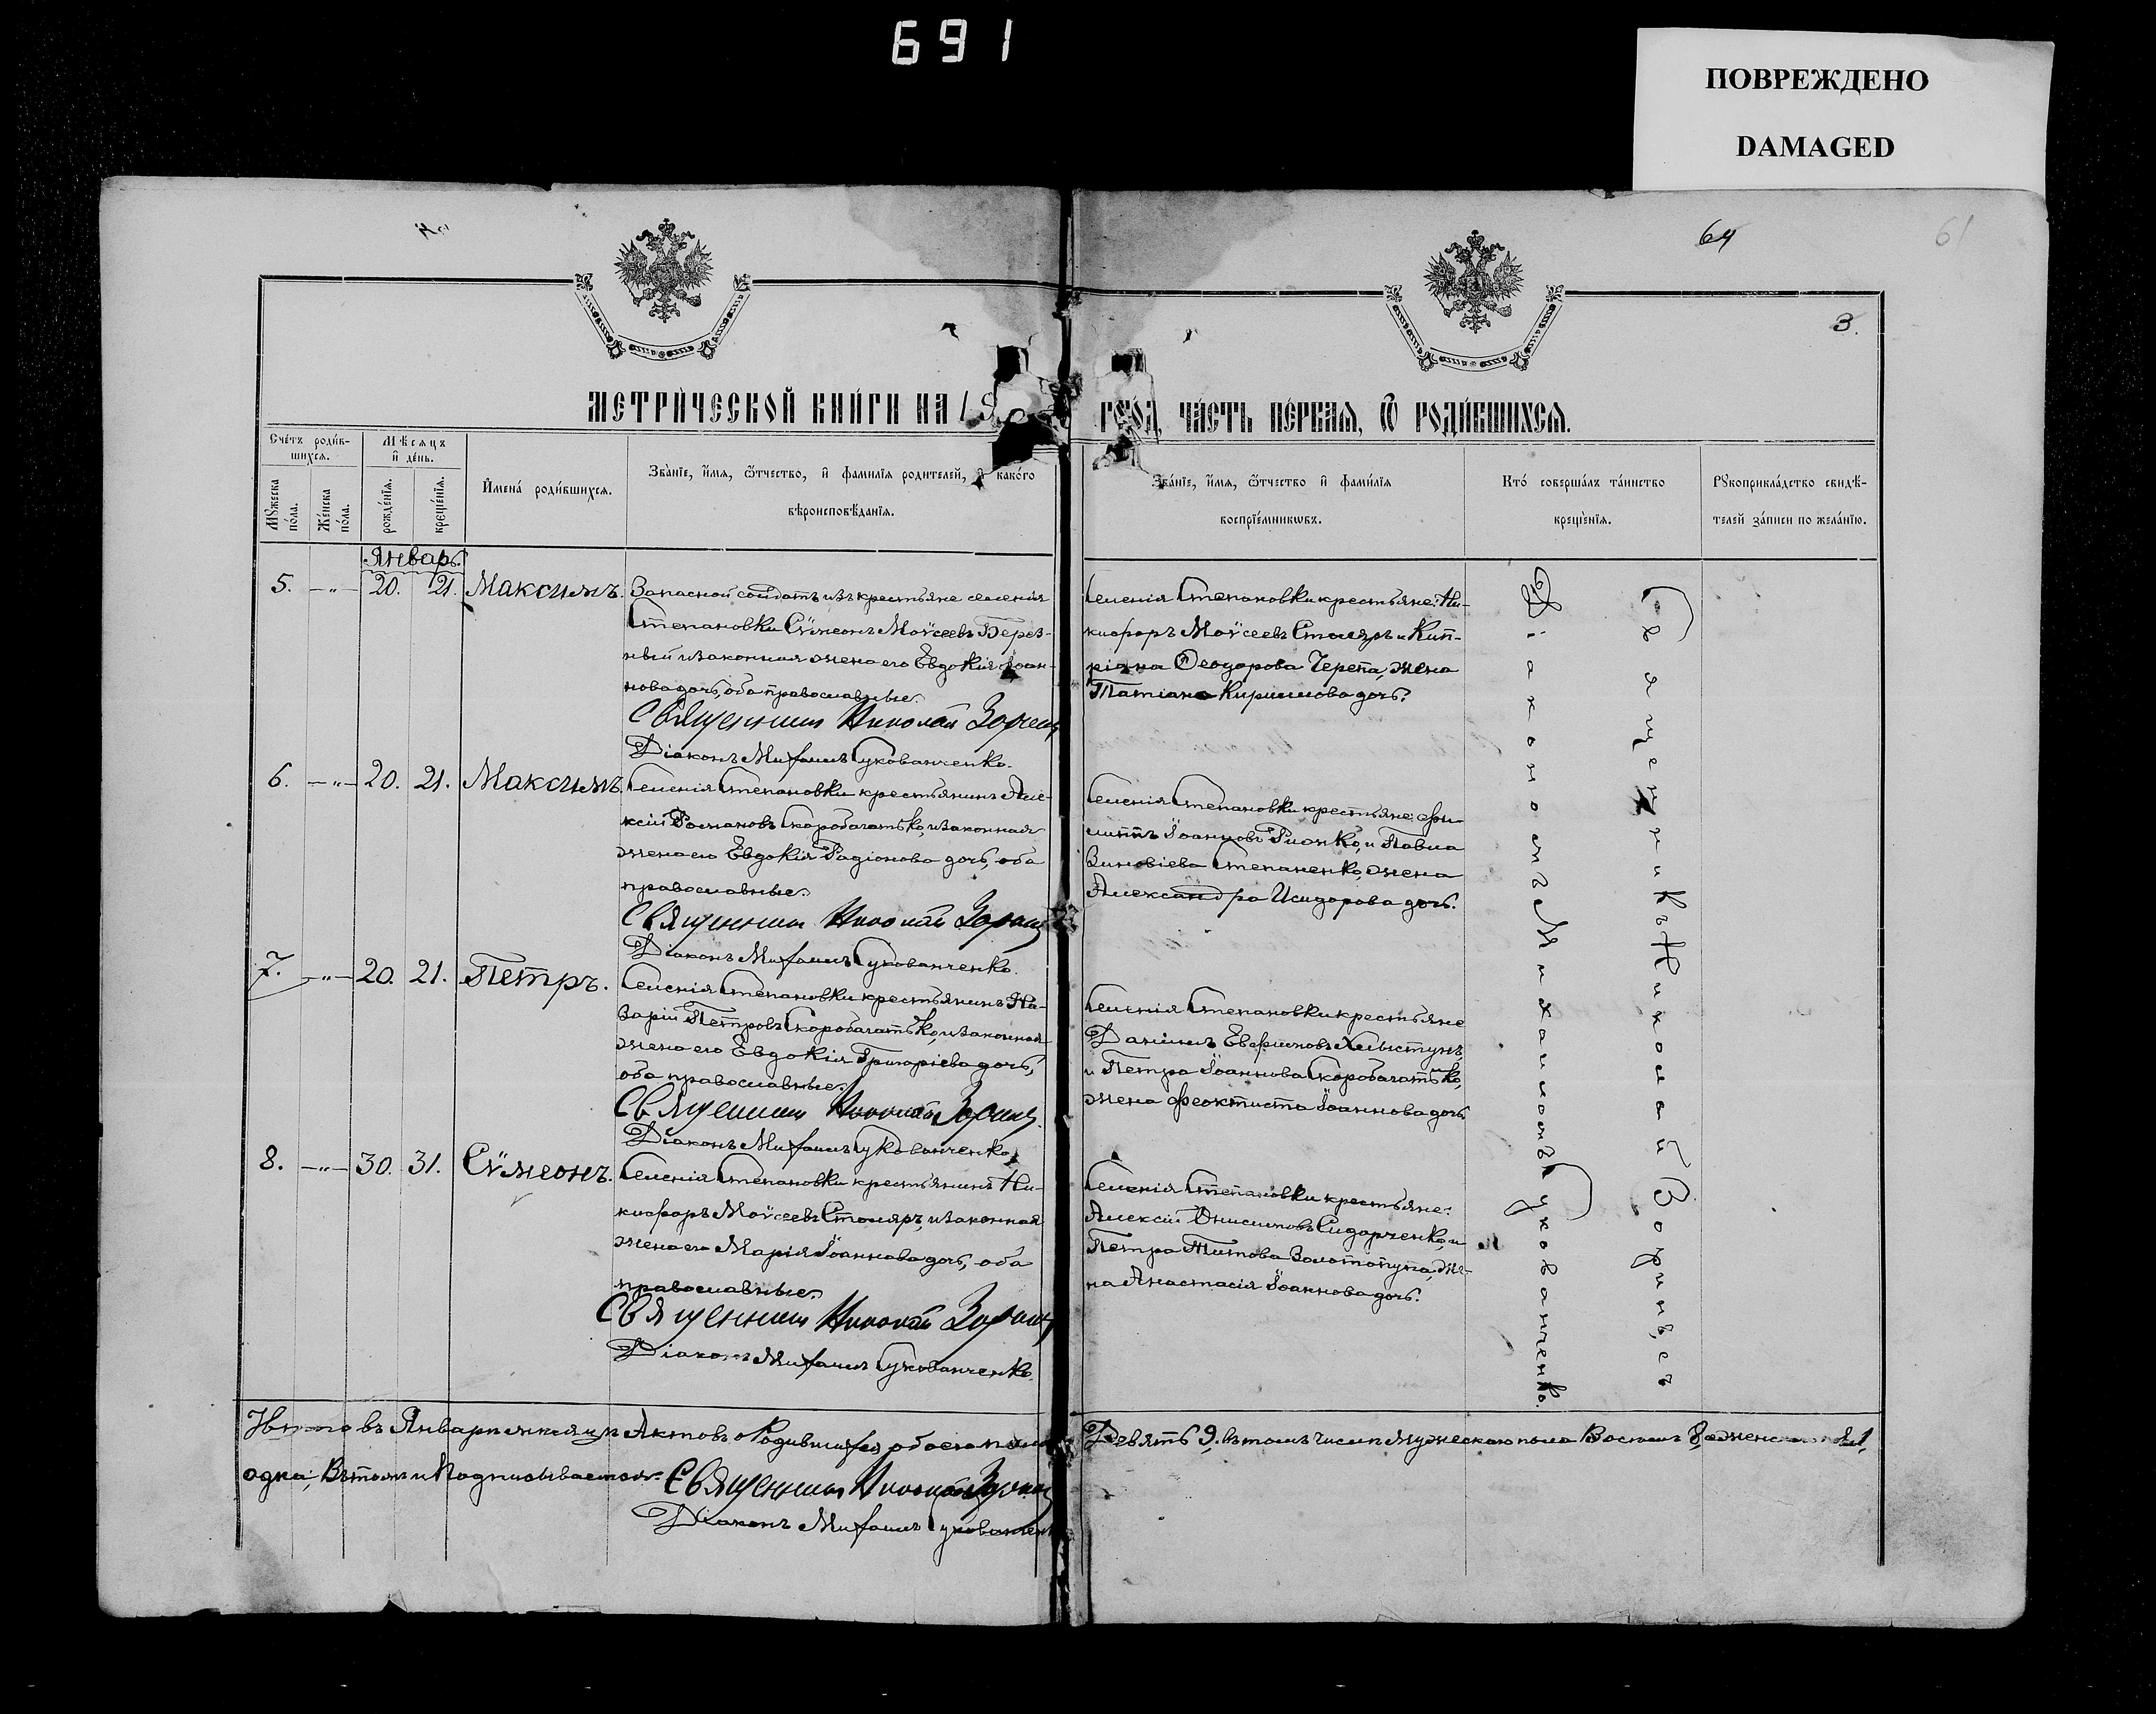 691
ПОВРЕЖДЕНО
DAMAGED
64
61
3.
МЕТРИ́ЧЕСКОЙ КНИ́ГИ НА 18
ГО́Д, ЧА́СТЬ ПЕ́РВАЯ, Ѿ РОДИ́ВШИХСЯ.
Сче́тъ роди́в-
шихся.
Мѣсяцъ
и҆ де́нь.
Му́жеска
по́ла.
Же́нска
по́ла.
рожде́нїя.
креще́нїя.
И҆мена́ роди́вшихся.
Зва́нїе, и҆́мя, ѻ҆́тчество, и҆ фамилїя родителей, и҆ како́го
вѣроисповѣ́данїя.
Зва́нїе, и҆́мя, ѻ҆́тчество и҆ фами́лїя
воспрїе́мниковъ.
Кто́ соверша́лъ та́инство
креще́нїя.
Рукоприкла́дство свидѣ́-
телей за́писи по жела́нїю.
Январь.
5. —„— 20. 21. Максимъ.
Запасной солдатъ изъ крестьяне селенія
Степановки Сѵмеонъ Моѵсеевъ Берез-
ный и законная жена его Евдокія Іоан-
нова дочь, оба православные.
Священникъ Николай Зоринъ
Діаконъ Михаилъ Сукованченко.
Селенія Степановки крестьяне: Ни-
кифоръ Моѵсеевъ Столяръ и Кип-
ріана Ѳеодорова Черепа, жена
Татіана Кириллова дочь.
6. —„— 20. 21. Максимъ.
Селенія Степановки крестьянинъ Але-
ксій Романовъ Скоробагатько, и законная
жена его Евдокія Радіонова дочь, оба
православные.
Священникъ Николай Зоринъ
Діаконъ Михаилъ Сукованченко.
Селенія Степановки крестьяне: Фи-
липпъ Іоанновъ и Павла
Зиновіева Степаненко, жена
Александра Исидорова дочь.
7. —„— 20. 21. Петръ.
Селенія Степановки крестьянинъ На-
зарій Петровъ Скоробагатько, и законная
жена его Евдокія Григоріева дочь,
оба православные.
Священникъ Николай Зоринъ.
Діаконъ Михаилъ Сукованченко.
Селенія Степановки крестьяне
Даніилъ Евфимовъ Хлыстунъ,
и Петра Іоаннова Скоробагатько,
жена Феоктиста Іоаннова дочь
8. —„— 30. 31. Сѵмеонъ.
Селенія Степановки крестьянинъ Ни-
кифоръ Моѵсеевъ Столяръ, и законная
жена его Марія Іоаннова дочь, оба
православные.
Священникъ Николай Зоринъ
Діаконъ Михаилъ Сукованченко.
Селенія Степановки крестьяне:
Алексій Онисимовъ Сидорченко, и
Петра Титова Золототупа, же-
на Анастасія Іоаннова дочь.
Священникъ Николай Зоринъ, съ
Діакономъ Михаиломъ Сукованченко.
Итого въ Январѣ мѣсяцѣ Актовъ о Родившихся обоего пола Девять 9. въ томъ числѣ мужескаго пола Восемь 8, женскаго 1,
одна, Въ томъ и Подписываемся. Священникъ Николай Зоринъ
Діаконъ Михаилъ Сукованченко